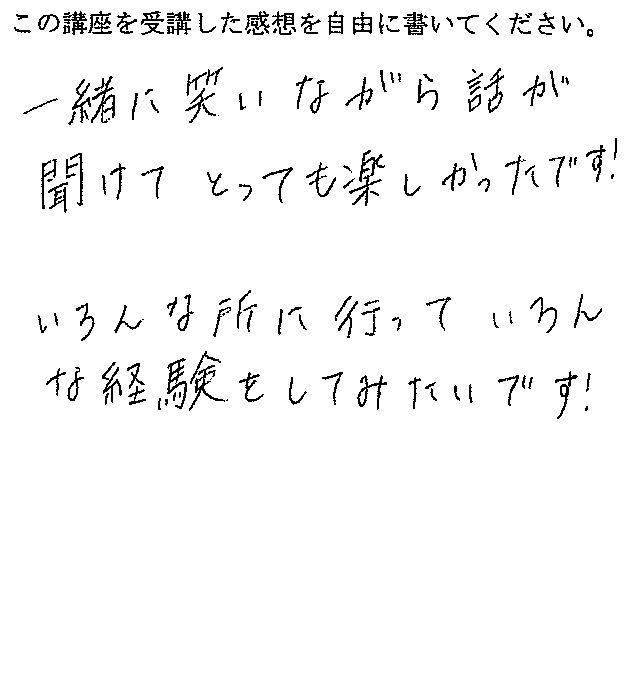 この講座を受講した感想を自由に書いてください。
一緒に笑いながら話が
聞けてとっても楽しかったです!
いろんな所に行っていろん
な経験をしてみたいです!